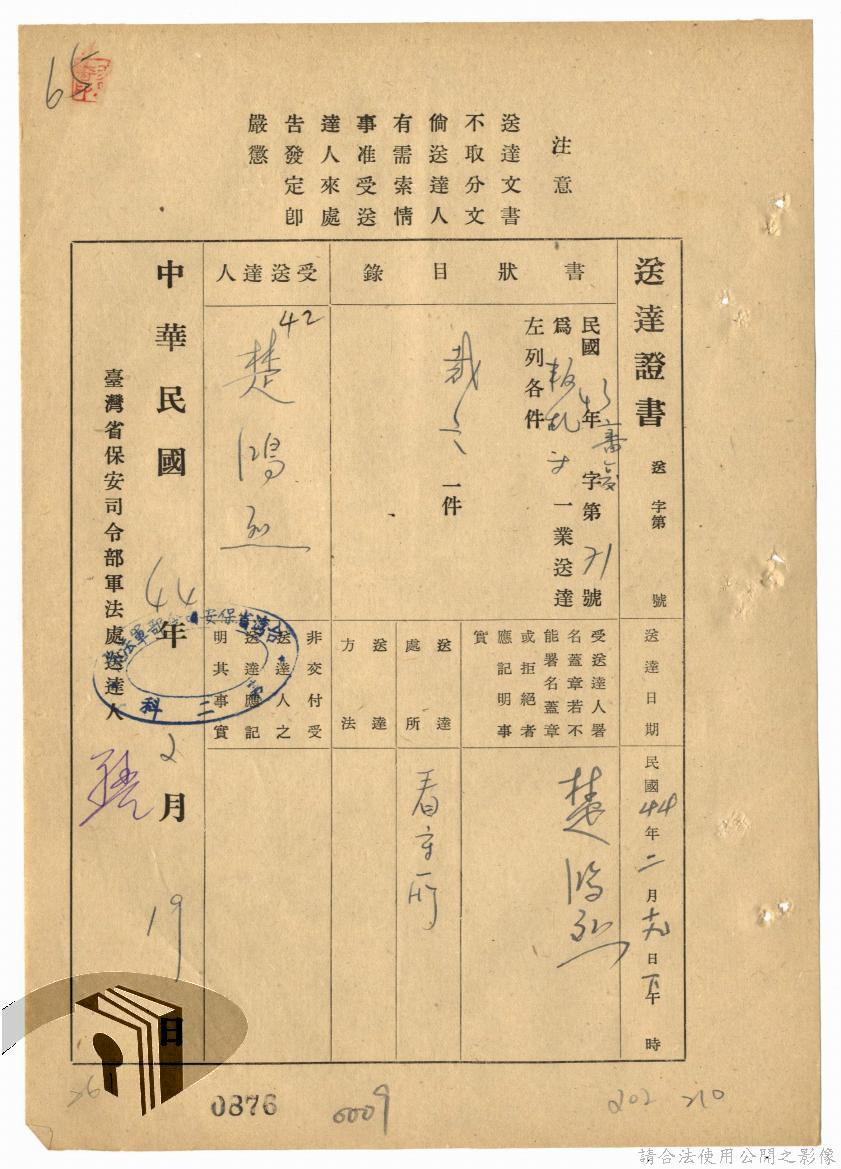 65
注意
送達文書
不取分文
倘送達人
有需索情
事准受送
達人來處
告發定卽
嚴懲
送達證書 送 字第 號
送達日期
民國44年二月十九日下午 時
書狀目錄
民國43年審複字第71號
爲叛乱一業送達
左列各件
裁定一件
受送達人署
名蓋章若不
能署名蓋章
或拒絕者
應記明事
實
楚鴻烈
送達處所
看守所
送達方法
受送達人
42
楚鴻烈
非交付受
送達人之
送達應記
明其事實
中華民國44年2月19日
臺灣省保安司令部軍法處送達人
台灣省保安司令部軍法處
二科
0876
0009
202
210
26
請合法使用公開之影像